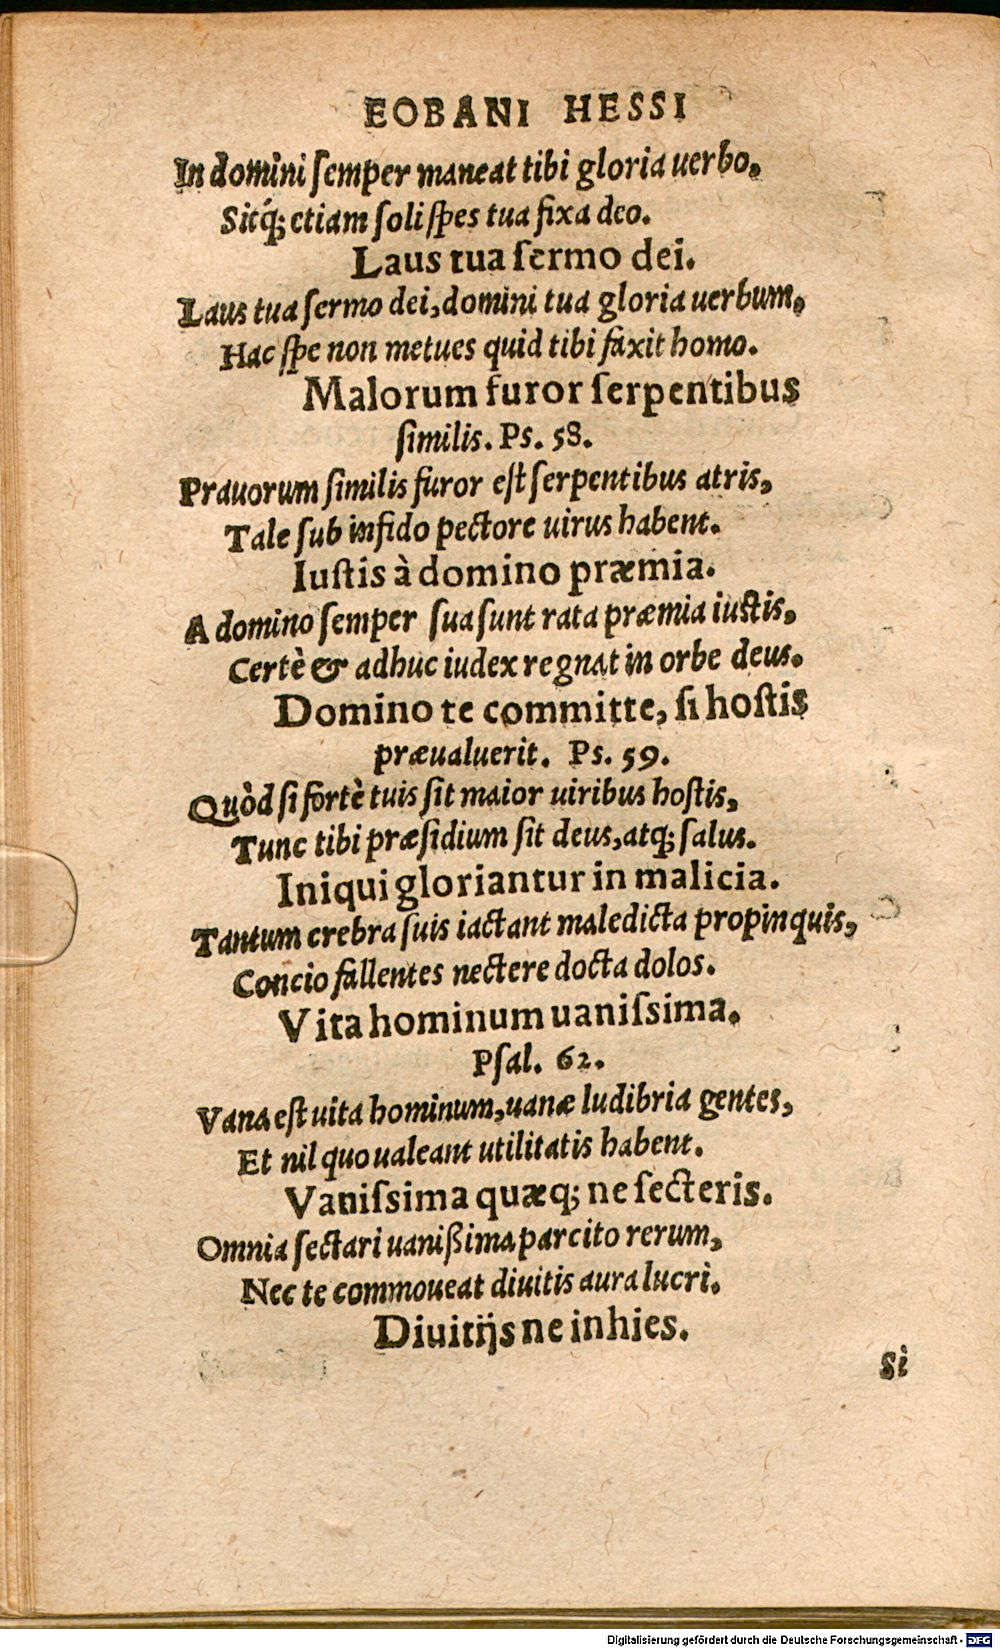 EOBANI HESSI
In domini ſemper maneat tibi gloria uerbo,
Sitq́; etiam ſoli ſpes tua fixa deo.
Laus tua ſermo dei.
Laus tua ſermo dei, domini tua gloria uerbum,
Hac ſpe non metues quid tibi faxit homo.
Malorum furor ſerpentibus
ſimilis. Ps. 58.
Prauorum ſimilis furor eſt ſerpentibus atris,
Tale ſub infido pectore uirus habent.
Iuſtis à domino præmia.
A domino ſemper ſua ſunt rata præmia iuſtis,
Certè & adhuc iudex regnat in orbe deus.
Domino te committe, ſi hoſtis
præualuerit. Ps. 59.
Quòd ſi fortè tuis ſit maior uiribus hoſtis,
Tunc tibi præſidium ſit deus, atq; ſalus.
Iniqui gloriantur in malicia.
Tantum crebra ſuis iactant maledicta propinquis,
Concio fallentes nectere docta dolos.
Vita hominum uaniſsima.
Pſal. 62.
Vana eſt uita hominum, uanæ ludibria gentes,
Et nil quo ualeant utilitatis habent.
Vaniſsima quæq; ne ſecteris.
Omnia ſectari uanißima parcito rerum,
Nec te commoueat diuitis aura lucri.
Diuitijs ne inhies.
Si
Digitalisierung gefördert durch die Deutsche Forschungsgemeinschaft - DFG